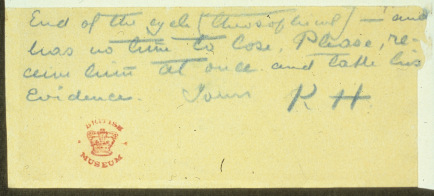 End of the cycle (theosophical) — and
has no time to lose. Please, re-
ceive him at once and take his
evidence. Yours K H
BRITISH
MUSEUM